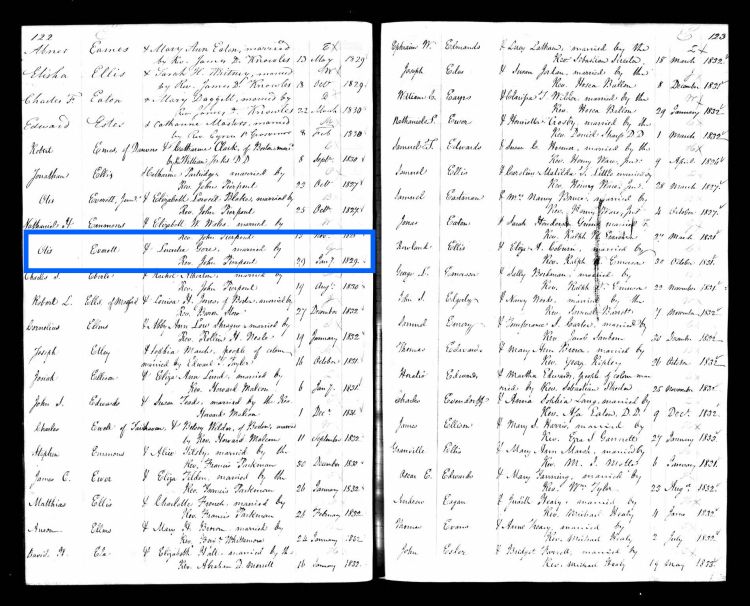 122
Abner Eames & Mary Ann Eaton, married
by Rev. James D. Knowles 13 May 1829
Elisha Ellis & Sarah H. Whitney, married
by Rev. James D. Knowles 18 Oct 1829
Charles F. Eaton & Mary Daggett, married by
Rev. James D. Knowles 22 March 1830
Edward Estes & Catharine Masters, married
by Rev. Cyrus P. Grosvenor 8 Feb 1830
Robert Emes, of Danvers & Catharine Clark, of Boston, mar
by William Jenks D D 8 Sept 1830
Jonathan Ellis & Catharine Partridge married by
Rev. John Pierpont 22 Oct 1827
Otis Everett, Junr. & Elizabeth Lowell Blake, married by
Rev. John Pierpont 25 Oct 1827
Nathaniel H. Emmons & Elizabeth W. Wales married by
Rev. John Pierpont Nov.
Otis Everett & Lucretia Gore, married by
Rev. John Pierpont 29 Jany. 1829
Charles S. Eberle & Rachel married by
Rev. John Pierpont 19 Augt. 1830
Robert L. Ells, of Medford & Louisa H. Jones, of Boston, married by
Rev. Baron Stow 27 December 1832
Cornelius Ellms & Abby Ann Low Sprague married by
Rev. Rollin H. Neale 19 January 1832
Joseph & Sophia people of color
married by Edward T. Taylor 16 October 1831
Josiah Ellison & Eliza Ann Lund, married by
Rev. Howard Malcom 6 Jany. 1831
John S. Edwards & Susan Teads, married by the Rev
Howard Malcom 1 Decr. 1831
Charles Ewell of & Betsey Wilder, of Boston, married
by Rev. Howard Malcom 11 September 1832
Stephen Emmons & Alice married by the
Rev. Francis Parkman 30 December 1830
James C. Ewer & Eliza Tilden, married by the
Rev. Francis Parkman 26 January 1832
Matthias Ellis & Charlotte French, married by
Rev. Francis Parkman 26 February 1832
Anson Ellms & Mary H. Brown married by
Rev. 24 January 1832
David H. Ela & Elizabeth Hall married by the
Rev. Abraham D. Merrill 16 January 1832
123
Ephraim W. Edmunds & Lucy Latham, married by the
Rev. Sebastian Streeter 18 March 1832
Joseph Edes & Susan married by the
Rev. Hosea Ballou 8 December 1831
William C. Eayrs & Clarissa T. Wilber, married by the
Rev. Hosea Ballou 29 January 1832
Nathaniel P. Ewer & Henrietta Crosby, married by the
Rev. Daniel Sharp D D 1 March 1832
Samuel married by the
Rev. Henry Ware, Junr. 9 April
Samuel Ellis & Caroline Matilda T. Little married by
Rev. Henry Ware, Jun. 28 March 1827
Samuel & Mrs. Nancy married by the
Rev. Henry Ware, Jun. 4 October 1827
Jonas Eaton & Sarah married by
Rev. Ralph W. Emerson 27 March 1831
Rowland Ellis & Eliza A. Coburn, married by
Rev. Ralph W. Emerson 20 October 1831
George B. Emerson & Sally married by
Rev. Ralph W. Emerson 22 November 1831
John S. Edgerly & Nancy married by the
Rev. Samuel Barrett 7 November 1832
Samuel Emery & Temperance S. Carter, married by
Rev. Jacob Sanborn December 1832
Thomas Edwards & Mary Ann Brown married by the
Rev. George Ripley October 1832
Horatio Edwards & Martha Edwards, people of color mar
ried by Rev. Sebastian Streeter 25 November 1832
Charles & Annie Sophia Lang, married by
Rev. Asa Eaton, D.D. 9 Decr. 1832
James Ellison & Mary S. Harris, married by
Rev. Ezra S. Gannett 27 January 1833
Granville Ellis & Mary Ann Marsh, married by
Rev. M. I. Motte 6 January 1831
Oscar C. Edwards & Mary Fanning, married by the
Rev. Wm. Tyler 23 Augt. 1832
Andrew Egan & Judith Healy, married by
Rev. Michael Healy 4 June 1832
Thomas Evans & Anna Feary, married by
Rev. Michael Healy 2 July 1832
John Esler & Bridget married by
Rev. Michael Healy 19 May 1833